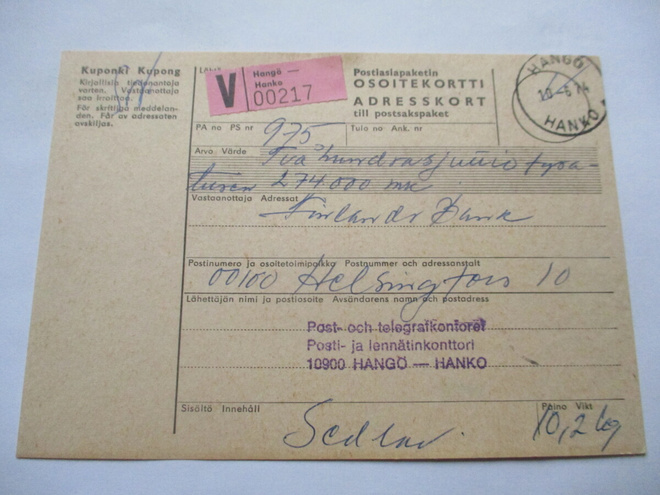 Kuponki Kupong
Kirjallisia tiedonantoja
varten. Vastaanottaja
saa irroittaa.
För skriftliga meddelan-
den. Får av adressaten
avskiljas.
V
Hangö —
Hanko
00217
Postiasiapaketin
OSOITEKORTTI
ADRESSKORT
till postsakspaket
HANGÖ
10.-5.74
HANKO
PA no PS nr 975 Tulo no Ank. nr
Arvo Värde Två hundrasjuttio fyra-
tusen 274.000 mk
Vastaanottaja Adressat
Finlands Bank
Postinumero ja osoitetoimipaikka Postnummer och adressanstalt
00100 Helsingfors 10
Lähettäjän nimi ja postiosoite Avsändarens namn och postadress
Post- och telegrafkontoret
Posti- ja lennätinkonttori
10900 HANGÖ — HANKO
Sisältö Innehåll Paino Vikt
Sedlar. 10,2 kg